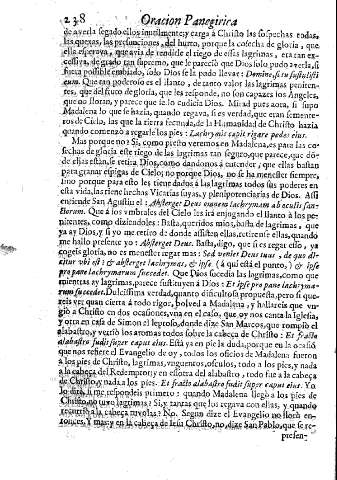 238 Oracion Panegirica
de averla segado ellos inutilmente, y carga à Christo las sospechas todas,
las quexas, las presunciones, del hurto, porque la cosecha de gloria, que
ella esperava, que avia de rendirle el riego de essas lagrimas, era tan ex-
cessiva, de grado tan supremo, que le pareciò que Dios solo pudo averla, si
fuera possible embiado, solo Dios se la pudo llevar: Domine, si tu sustulisti
eum. Que tan poderoso es el llanto, de tanto valor las lagrimas peniten-
tes, que del fruto de gloria, que les responde, no son capazes los Angeles,
que no lloran, y parece que se lo cudicia Dios. Mirad pues aora, si supo
Madalena lo que se hazia, quando regava, si es verdad, que eran simente-
ras de Cielo, las que la tierra fecunda, de la Humanidad de Christo hazia
quando comenzò a regarle los pies: Lachrymis cœpit rigare pedes eius.
Mas porque no? Si, como presto veremos en Madalena, es para las co-
sechas de gloria este riego de las lagrimas tan seguro, que parece, que dõ-
de ellas estàn, se retira Dios, como dandonos à entender, que ellas bastan
para granar espigas de Cielo; no porque Dios, no se ha menester siempre,
sino porque para esto les tiene dados à las lagrimas todos sus poderes en
esta vida, las tiene hechas Vicarias suyas, y plenipotenciarias de Dios. Assi
entiende San Agustin el: Absterget Deus omnem lachrymam ab oculis San-
ctorum. Que à los vmbrales del Cielo les irà enjugando el llanto à los pe-
nitentes, como diziendoles: Basta, queridos mios, basta de lagrimas, que
ya ay Dios, y si yo me retiro de donde assisten ellas, retirense ellas, quando
me hallo presente yo: Absterget Deus. Basta, digo, que si es regar esso, ya
cogeis gloria, no es menester regar mas: Sed veniet Deus tuus, de quo di-
citur vbi est; & absterget lachrymas, & ipse (à qui està el punto,) & ipse
pro pane lachrymarum succedet. Que Dios succedia las lagrimas, como que
mientras ay lagrimas, parece sustituyen à Dios: Et ipse pro pane lachryma-
rum succedet. Dulcissima verdad, quanto dificultosa propuesta, pero si que-
reis ver quan cierta à todo rigor, bolved à Madalena, y hallareis que vn-
giò a Christo en dos ocasiones, vna en el caso, que oy nos canta la Iglesia,
y otra en casa de Simon el leproso, donde dize San Marcos, que rompiò el
alabastro, y vertiò los aromas todos sobre la cabeça de Christo: Et fracto
alabastro fudit super caput eius. Està ya en pie la duda, porque en la ocasiõ
que nos refiere el Evangelio de oy, todos los oficios de Madalena fueron
à los pies de Christo, lagrimas, vnguentos, osculos, todo a los pies, y nada
à la cabeça del Redemptor; y en essotra del alabastro, todo fue à la cabeça
de Christo, y nada a los pies. Et fracto alabastro fudit super caput eius. Yo
lo dirè, si me respondeis primero: quando Madalena llegò a los pies de
Christo, no tuvo lagrimas? Si, y tantas que los regava con ellas, y quando
recurriò a la cabeça tuvolas? No. Segun dize el Evangelio no llorò en-
tonces. Y mas; en la cabeça de Iesu Christo, no, dize San Pablo, que se re-
presen-